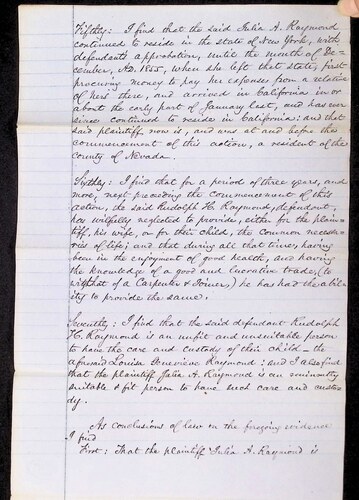 Fifthly: I find that the said Julia A. Raymond
continued to reside in the state of New York, with
defendants approbation, until the month of De-
cember, A.D. 1855, when she left that state, first
procuring money to pay her expenses from a relative
of hers there, and arrived in California in or
about the early part of January last, and has ever
since continued to reside in California: and that
said plaintiff now is, and was at and before the
commencement of this action, a resident of the
county of Nevada.
Sixthly: I find that for a period of three years, and
more, next preceding the commencement of this
action, the said Rudolph H. Raymond, defendant,
has wilfully neglected to provide, either for the plain-
tiff, his wife, or for their child, the common necessa-
ries of life; and that during all that time, having
been in the enjoyment of good health, and having
the knowledge of a good and lucrative trade, (to
wit, that of a Carpenter & Joiner,) he has had the abil-
ity to provide the same.
Seventhly: I find that the said defendant Rudolph
H. Raymond is an unfit and unsuitable person
to have the care and custody of their child – the
aforesaid Louisa Genevieve Raymond: and I also find
that the plaintiff Julia A. Raymond is an eminently
suitable & fit person to have such care and custo-
dy.
As conclusions of law on the foregoing evidence
I find
First: That the plaintiff Julia A. Raymond is